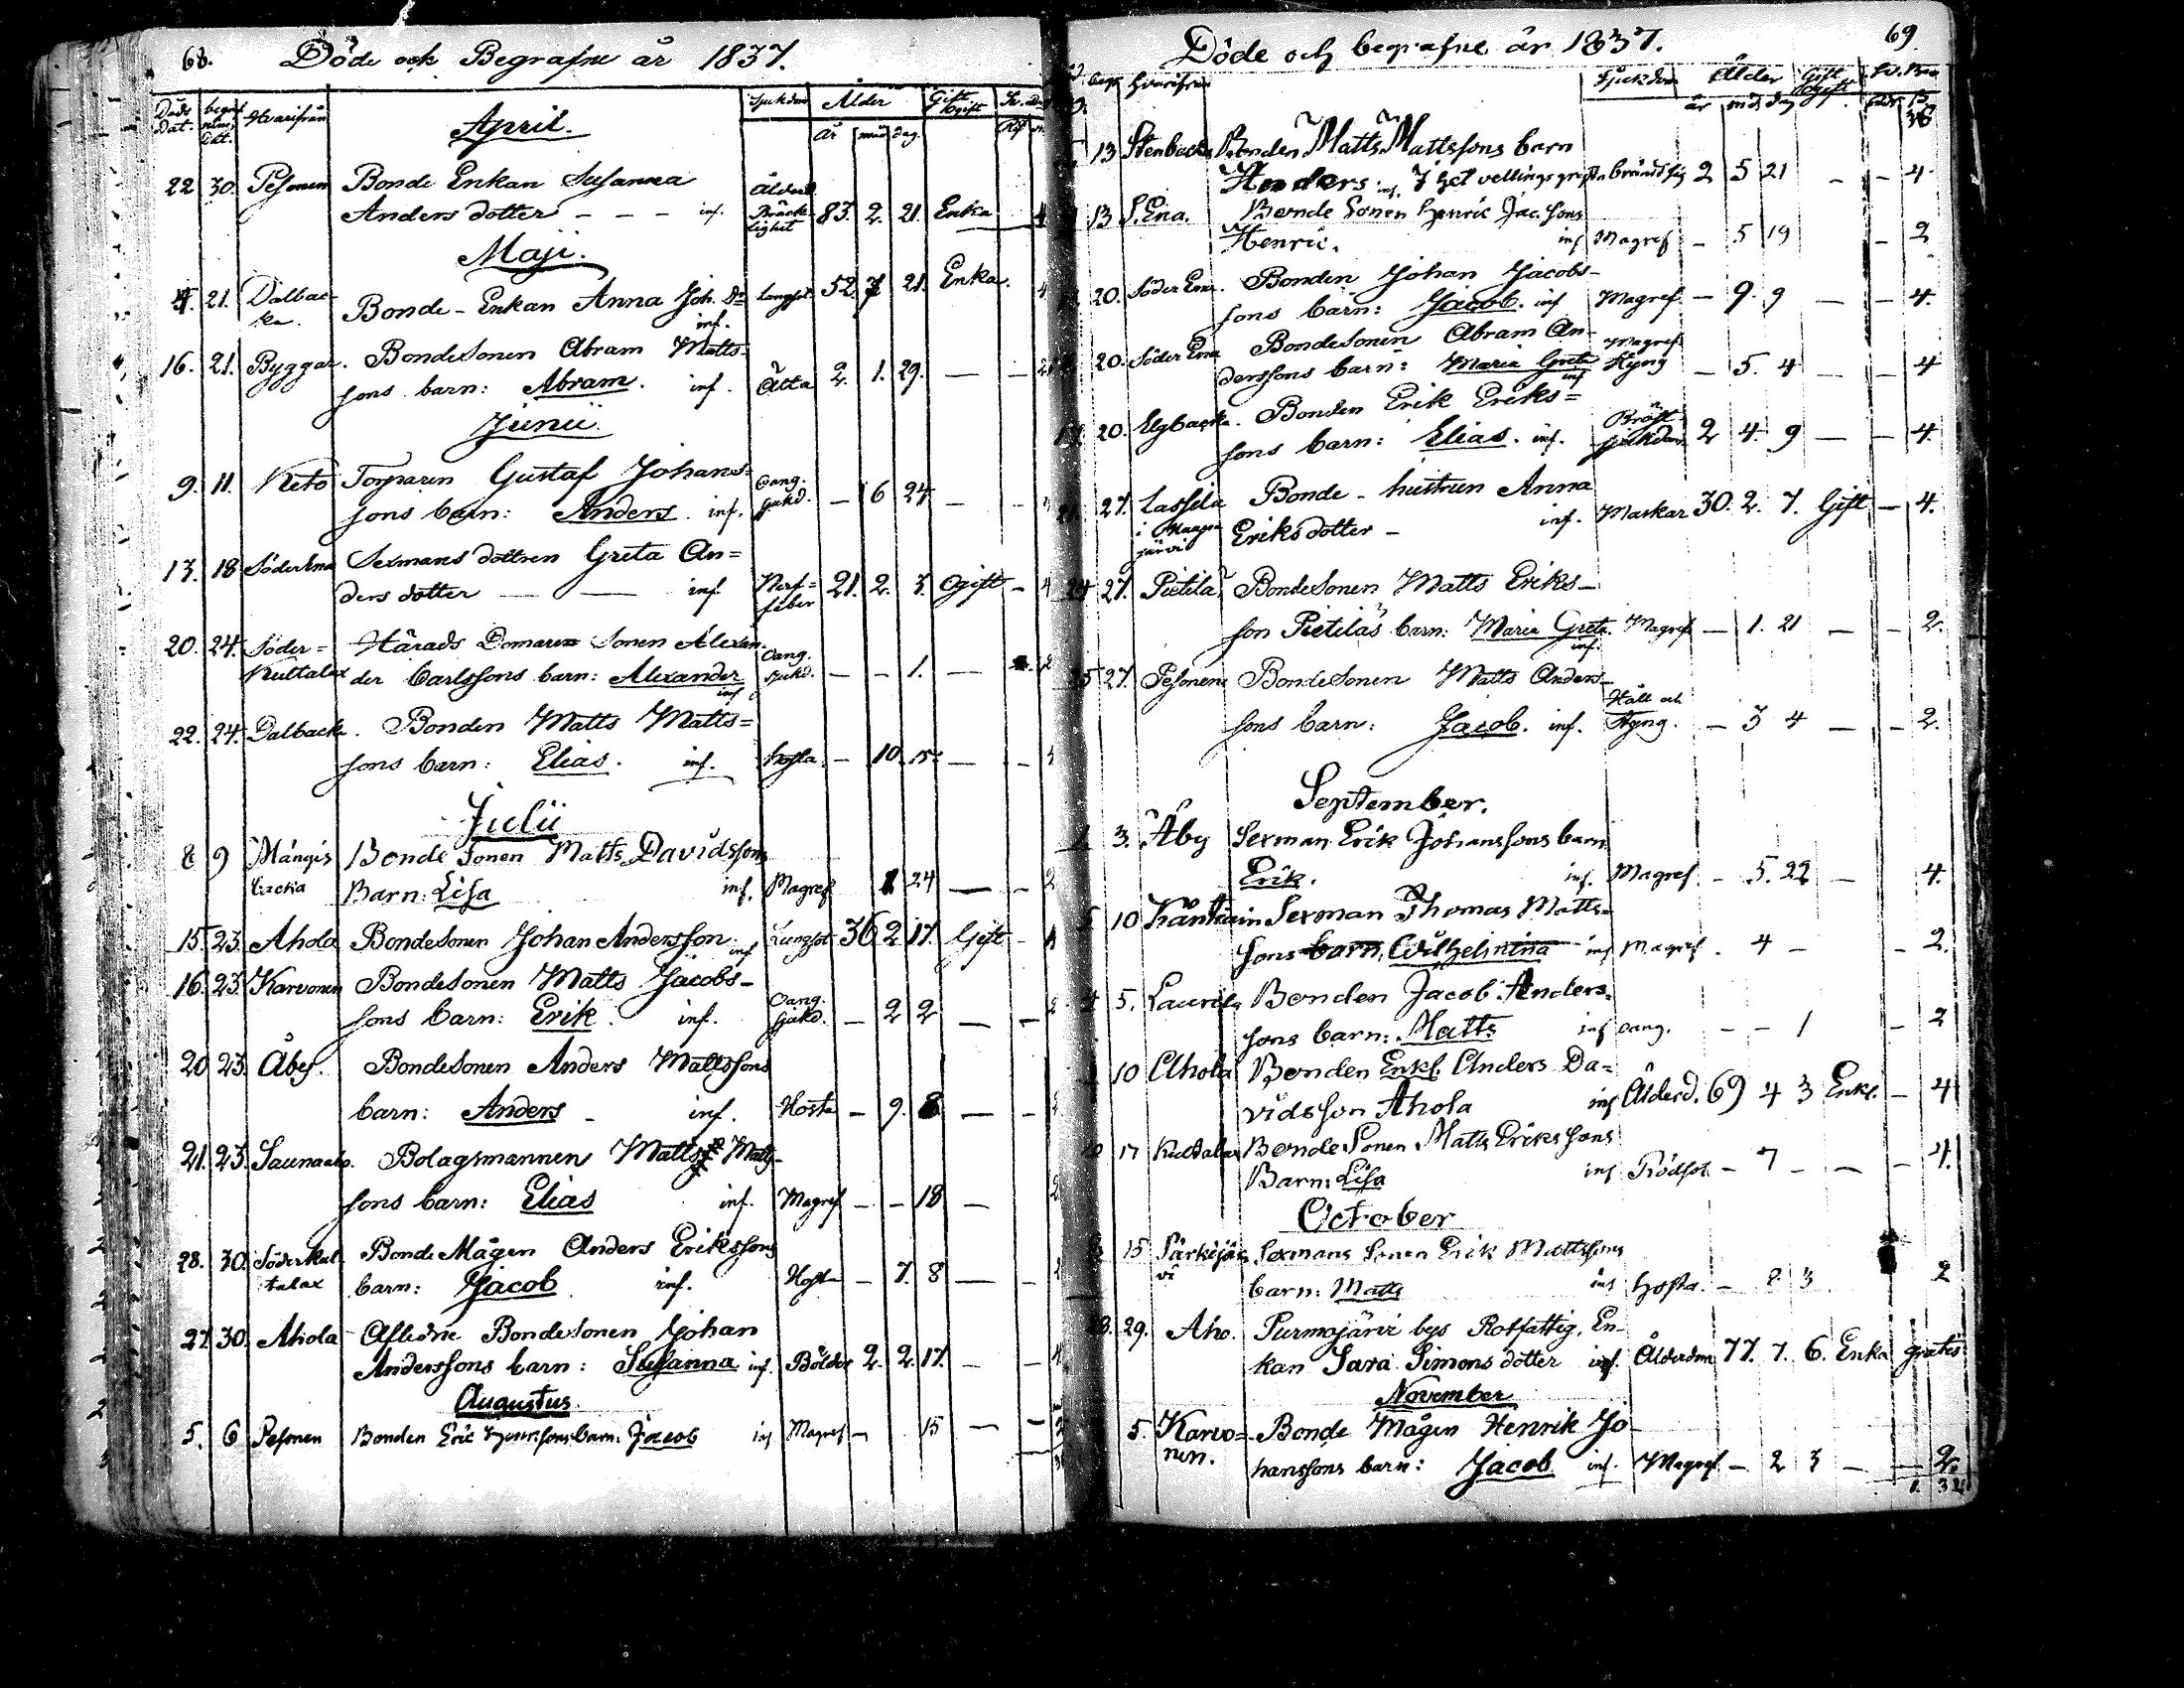 68. Döde och Begrafne år 1837.
Döds dat. begrafn. dat. Hvarifrån Sjukdom Ålder Gift Ogift
år mån dag.
April.
22 30. Pesonen Bonde Enkan Susanna
Anders dotter – – – inf. Ålderd. Bräcklighet 83. 2. 21. Enka 4
Maji.
21. Dalbacka. Bonde-Enkan Anna Joh. Dr inf. Lungsot 52. 7 21. Enka. 4
16. 21. Byggar. BondeSonen Abram Matts-
sons barn: Abram. inf. Åtta 2. 1. 29. — –
Junii.
9. 11. Keto Torparen Gustaf Johans=
sons barn: Anders. inf. Oang. sjukd. – 6 24 –
13. 18 SöderEna Sexmans dottren Greta An=
ders dotter — — inf Nerf=feber 21. 2. 3. Ogift – 4
20. 24. Söder=Kultalax Härads Domare Sonen Alexan-
der Carlssons barn: Alexander inf Oang. sjukd. – – 1. – 2
22. 24. Dalbacka. Bonden Matts Matts=
sons barn: Elias. inf. Hosta – 10. 15 — –
Julii
8 9 Mångis backa Bonde Sonen Matts Davidssons
Barn: Lisa inf. Magref 1 24 — – 2
15. 23. Ahola BondeSonen Johan Andersson inf Lungsot 36 2 17. Gift – 4
16. 23. Karvonen BondeSonen Matts Jacobs-
sons barn: Erik. inf. Oang. sjukd. – 2 2 — – 2
20 23. Åby. BondeSonen Anders Mattssons
barn: Anders – inf. Hosta – 9. 8 — –
21. 23. Saunaaho. Bolagsmannen Matts Matts-
sons barn: Elias inf. Magref – – 18 — 2
28. 30. SöderKultalax Bonde Mågen Anders Erikssons
barn: Jacob inf. Hosta – 7. 8 —
27. 30. Ahola Aflidne BondeSonen Johan
Anderssons barn: Susanna inf. Bölder 2. 2. 17. – – 4
Augustus.
5. 6 Pesonen Bonden Eric Henrissons barn: Jacob inf Magref – 15 — – 2
Döde och begrafne år 1837. 69.
Hvarifrån Sjukdom Ålder Gift Ogift
år mån dag
13 Stenbacka Bonden Matts Mattssons barn
Anders. inf. I het vellings gryta bränd sig 2 5 21 – – 4
13 S. Ena. Bonde Sonen Henric Jac. sons
Henric. inf Magref – 5 19 – 2
20. Söder Ena. Bonden Johan Jacobs-
sons barn: Jacob. inf Magref – 9. 9 — – 4.
20. Söder Ena BondeSonen Abram An-
derssons barn: Maria Greta inf Magref Styng – 5. 4 — – 4
20. Elgbacka. Bonden Erik Eriks=
sons barn: Elias. inf. Bröst sjukdom 2 4. 9 — – 4.
27. Lassila i Maaga järvi Bonde-hustrun Anna
Eriksdotter – inf. Maskar 30. 2. 7. Gift – 4.
24 27. Pietilä BondeSonen Matts Eriks-
son Pietiläs barn: Maria Greta. inf. Magref – 1. 21 — – 2.
25 27. Pesonen BondeSonen Matts Anders-
sons barn: Jacob. inf. Håll och Styng. – 3 4 — – 2.
September.
3. Åby Sexman Erik Johanssons barn
Erik. inf. Magref. – 5. 22 — 4.
5 10 Sexman Thomas Matts-
sons barn. Wilhelmina inf Magref. 4 – – 2.
4 5. Laurila Bonden Jacob Anders-
sons barn: Matts inf oang. – – 1 – 2
10 Ahola Bonden Enkl. Anders Da=
vidsson Ahola inf Ålderd. 69 4 3 Enkl. – 4
17 Kultalax Bonde Sonen Matts Erikssons
Barn: Lisa inf Rödsot – 7 – — – 4.
October
15 Särkijärvi Sexmans Sonen Erik Mattssons
barn: Matts inf hosta. – 8 3 2
29. Aho. Purmojärvi bys Rotfattig, En-
kan Sara Simons dotter inf. Ålderdom 77. 7. 6. Enka gratis
November
5. Karvo=nen. Bonde Mågen Henrik Jo-
hanssons barn: Jacob inf. Magref – 2 3 — – 2.